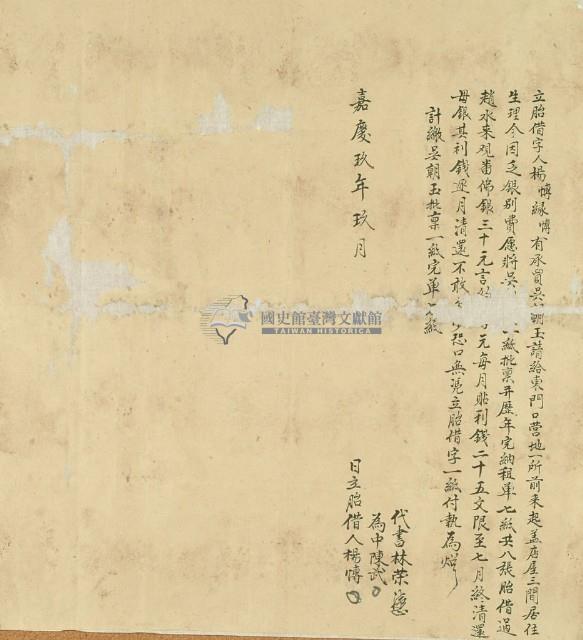 立胎借字人楊愽緣愽有承買吳朝玉請給東門口營地一所前来起盖店屋三間居住
生理今因乏銀别費愿將吳 八紙批禀并歷年完納租单七紙共八張胎借過
趙永来观畨佛銀三十元言約 元每月貼利錢二十五文限至七月終清還
母銀其利錢逐月清還不敢 恐口無凴立胎借字一紙付执為炤
計繳吳朝玉批禀一紙完单 紙
嘉慶玖年玖月
代書林荣
為中陳武
日立胎借人楊愽
國史館臺灣文獻館
TAIWAN HISTORICA